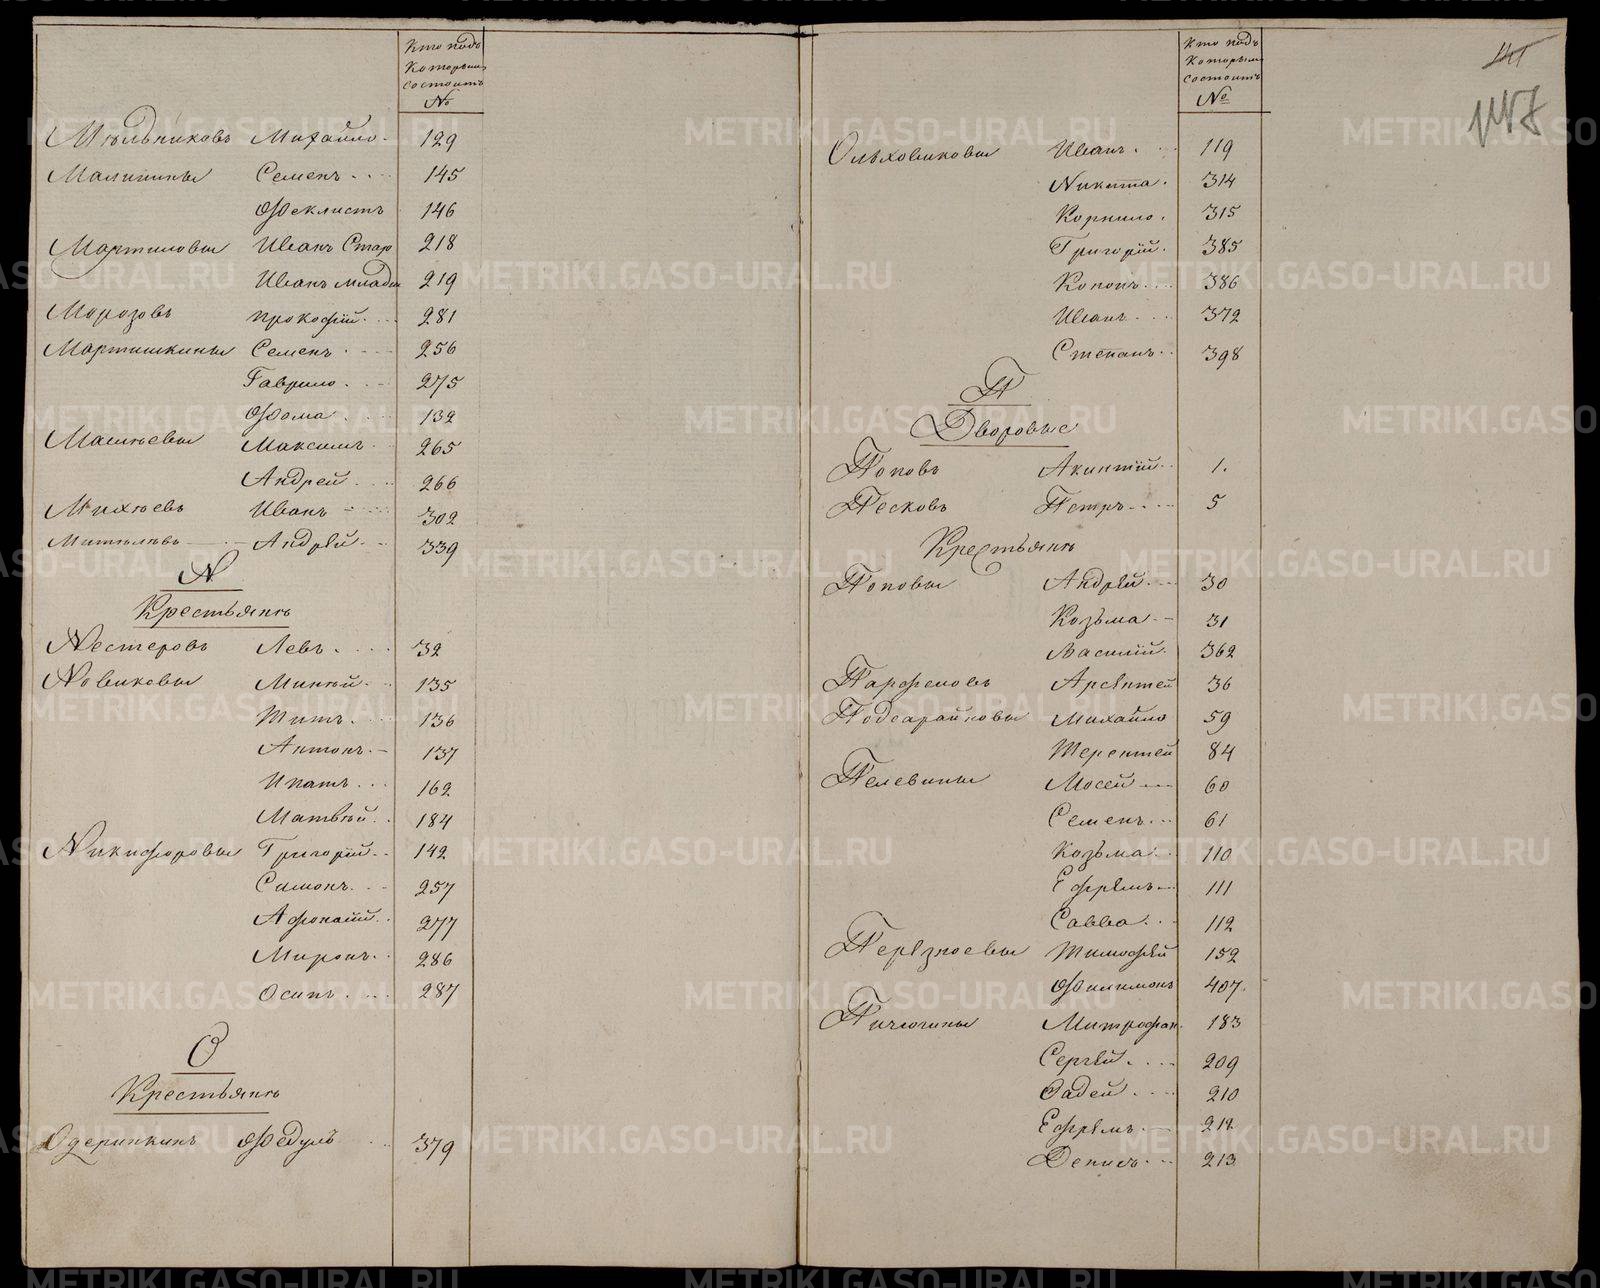 Кто подъ
Которымъ
состоитъ
№
Мѣльниковъ Михайло 129
Малинины Семенъ 145
Феклистъ 146
Мартиновы Иванъ Стар 218
Иванъ младш 219
Морозовъ Прокофій 281
Мартишкины Семенъ 256
Гаврило 275
Фома 132
Матѣевы Максимъ 265
Андрей 266
Михѣевъ Иванъ 302
Андрѣй 339
N
Крестьянѣ
Nестеровъ Левъ 32
Nовиковы Минѣй 135
Титъ 136
Антонъ 137
Ипатъ 162
Матвѣй 184
Nикифоровы Григорій 142
Симонъ 257
Афонасій 277
Миронъ 286
Осипъ 287
О
Крестьянѣ
Одеринкинъ Федулъ 379
Кто подъ
Которымъ
состоитъ
№
Ольховиковы Иванъ 119
Никита 314
Корнило 315
Григорій 385
Кононъ 386
Иванъ 372
Степанъ 398
П
Дворовые
Поповъ Акинтій 1.
Песковъ Петръ 5
Крестьянѣ
Поповы Андрѣй 30
Козьма 31
Василій 362
Парфеновъ Арѣнтей 36
Подсарайновы Михайло 59
Терентей 84
Пелевины Мосей 60
Семенъ 61
Козьма 110
Ефрѣмъ 111
Савва 112
Перѣзноевы Тимофѣй 152
Филимонъ 407
Пичюгины Митрофан 183
Сергѣй 209
Фадей 210
Ефрѣмъ 212
Денисъ 213
METRIKI.GASO-URAL.RU